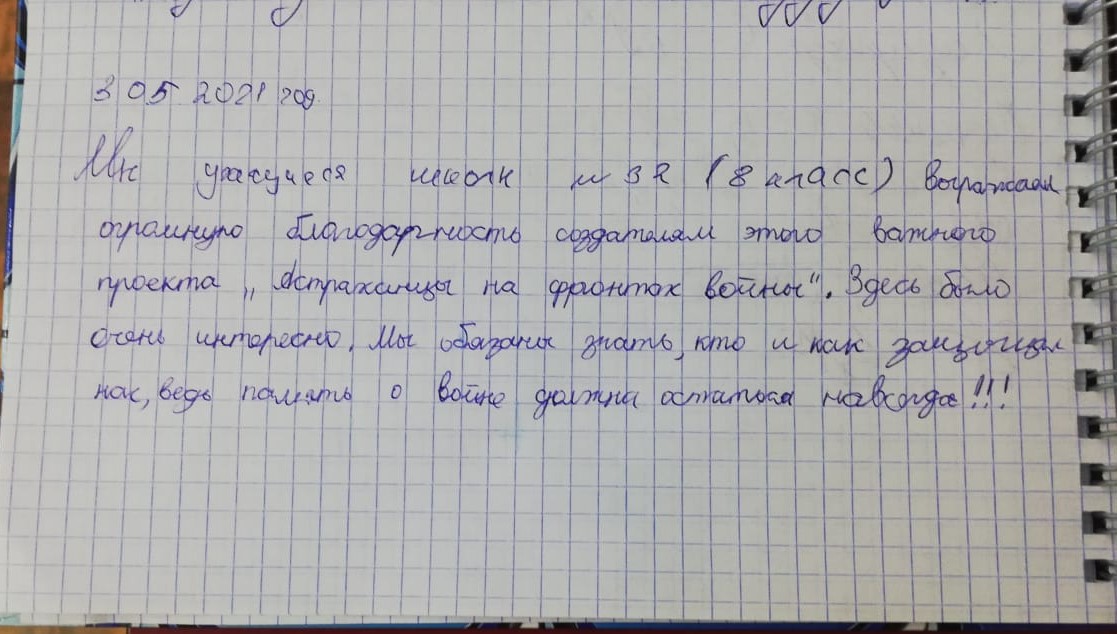 3 05 2021 год.
Мы учащиеся школы № 32 (8 класс) выражаем
огромную благодарность создателям этого важного
проекта „Астраханцы на фронтах войны". Здесь было
очень интересно. Мы обязаны знать, кто и как защищал
нас, ведь память о войне должна остаться навсегда!!!